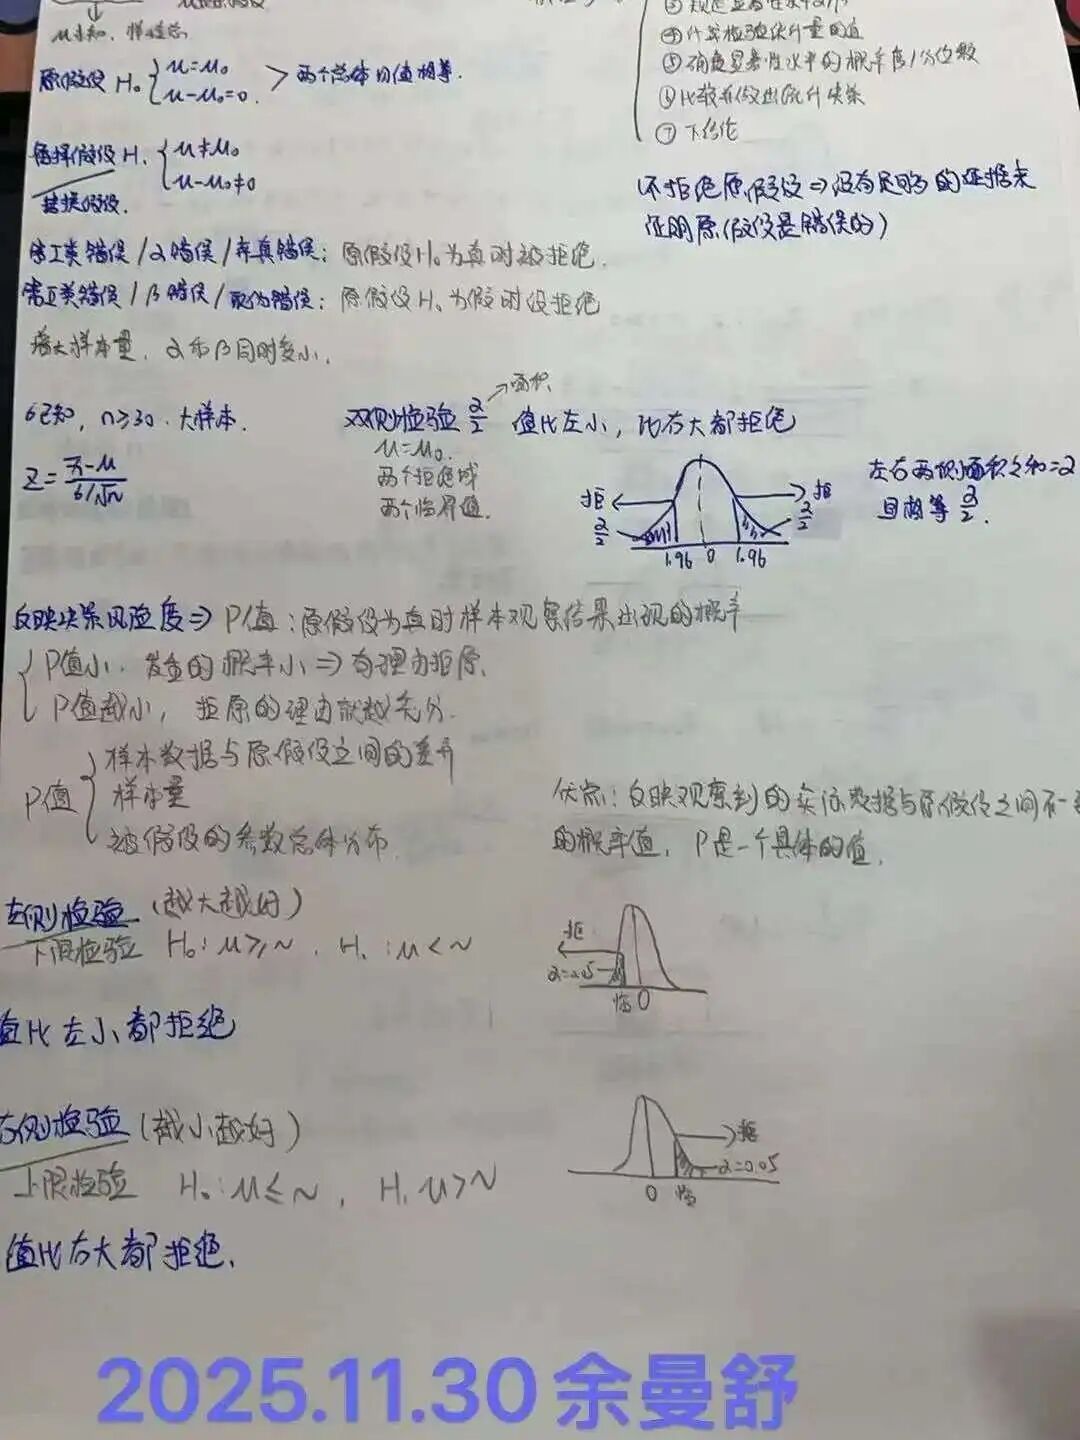 μ未知，样
原假设 H₀ { μ=μ₀
μ-μ₀=0. > 两个总体均值相等.
备择假设 H₁ { μ≠μ₀
μ-μ₀≠0
替换假设.
③规定显著性水平
④计算检验统计量的值
⑤确定显著性水平的概率度/分位数
⑥比较并做出统计决策
⑦下结论
(不拒绝原假设⇒没有足够的证据来
证明原假设是错误的)
第Ⅰ类错误/α错误/弃真错误：原假设H₀为真时被拒绝.
第Ⅱ类错误/β错误/取伪错误：原假设H₀为假时没拒绝
增大样本量，α和β同时变小.
σ已知，n≥30.大样本.
Z = (x̄-μ)/(σ/√n)
双侧检验 α/2 →面积
μ=μ₀.
两个拒绝域
两个临界值.
值比左小，比右大都拒绝
拒 拒
α/2 α/2
1.96 0 1.96
左右两侧面积之和=α
且相等 α/2.
反映决策风险度⇒P值：原假设为真时样本观察结果出现的概率
{ P值小.发生的概率小⇒有理由拒原.
P值越小，拒原的理由就越充分.
P值 { 样本数据与原假设之间的差异
样本量
被假设的参数总体分布.
优点：反映观察到的实际数据与原假设之间不一致
的概率值，P是一个具体的值.
左侧检验(越大越好)
下限检验 H₀：μ≥~，H₁：μ<~
拒
α=0.05
临 0
值比左小都拒绝
右侧检验(越小越好)
上限检验 H₀：μ≤~，H₁ μ>~
拒
α=0.05
0 临
值比右大都拒绝.
2025.11.30余曼舒